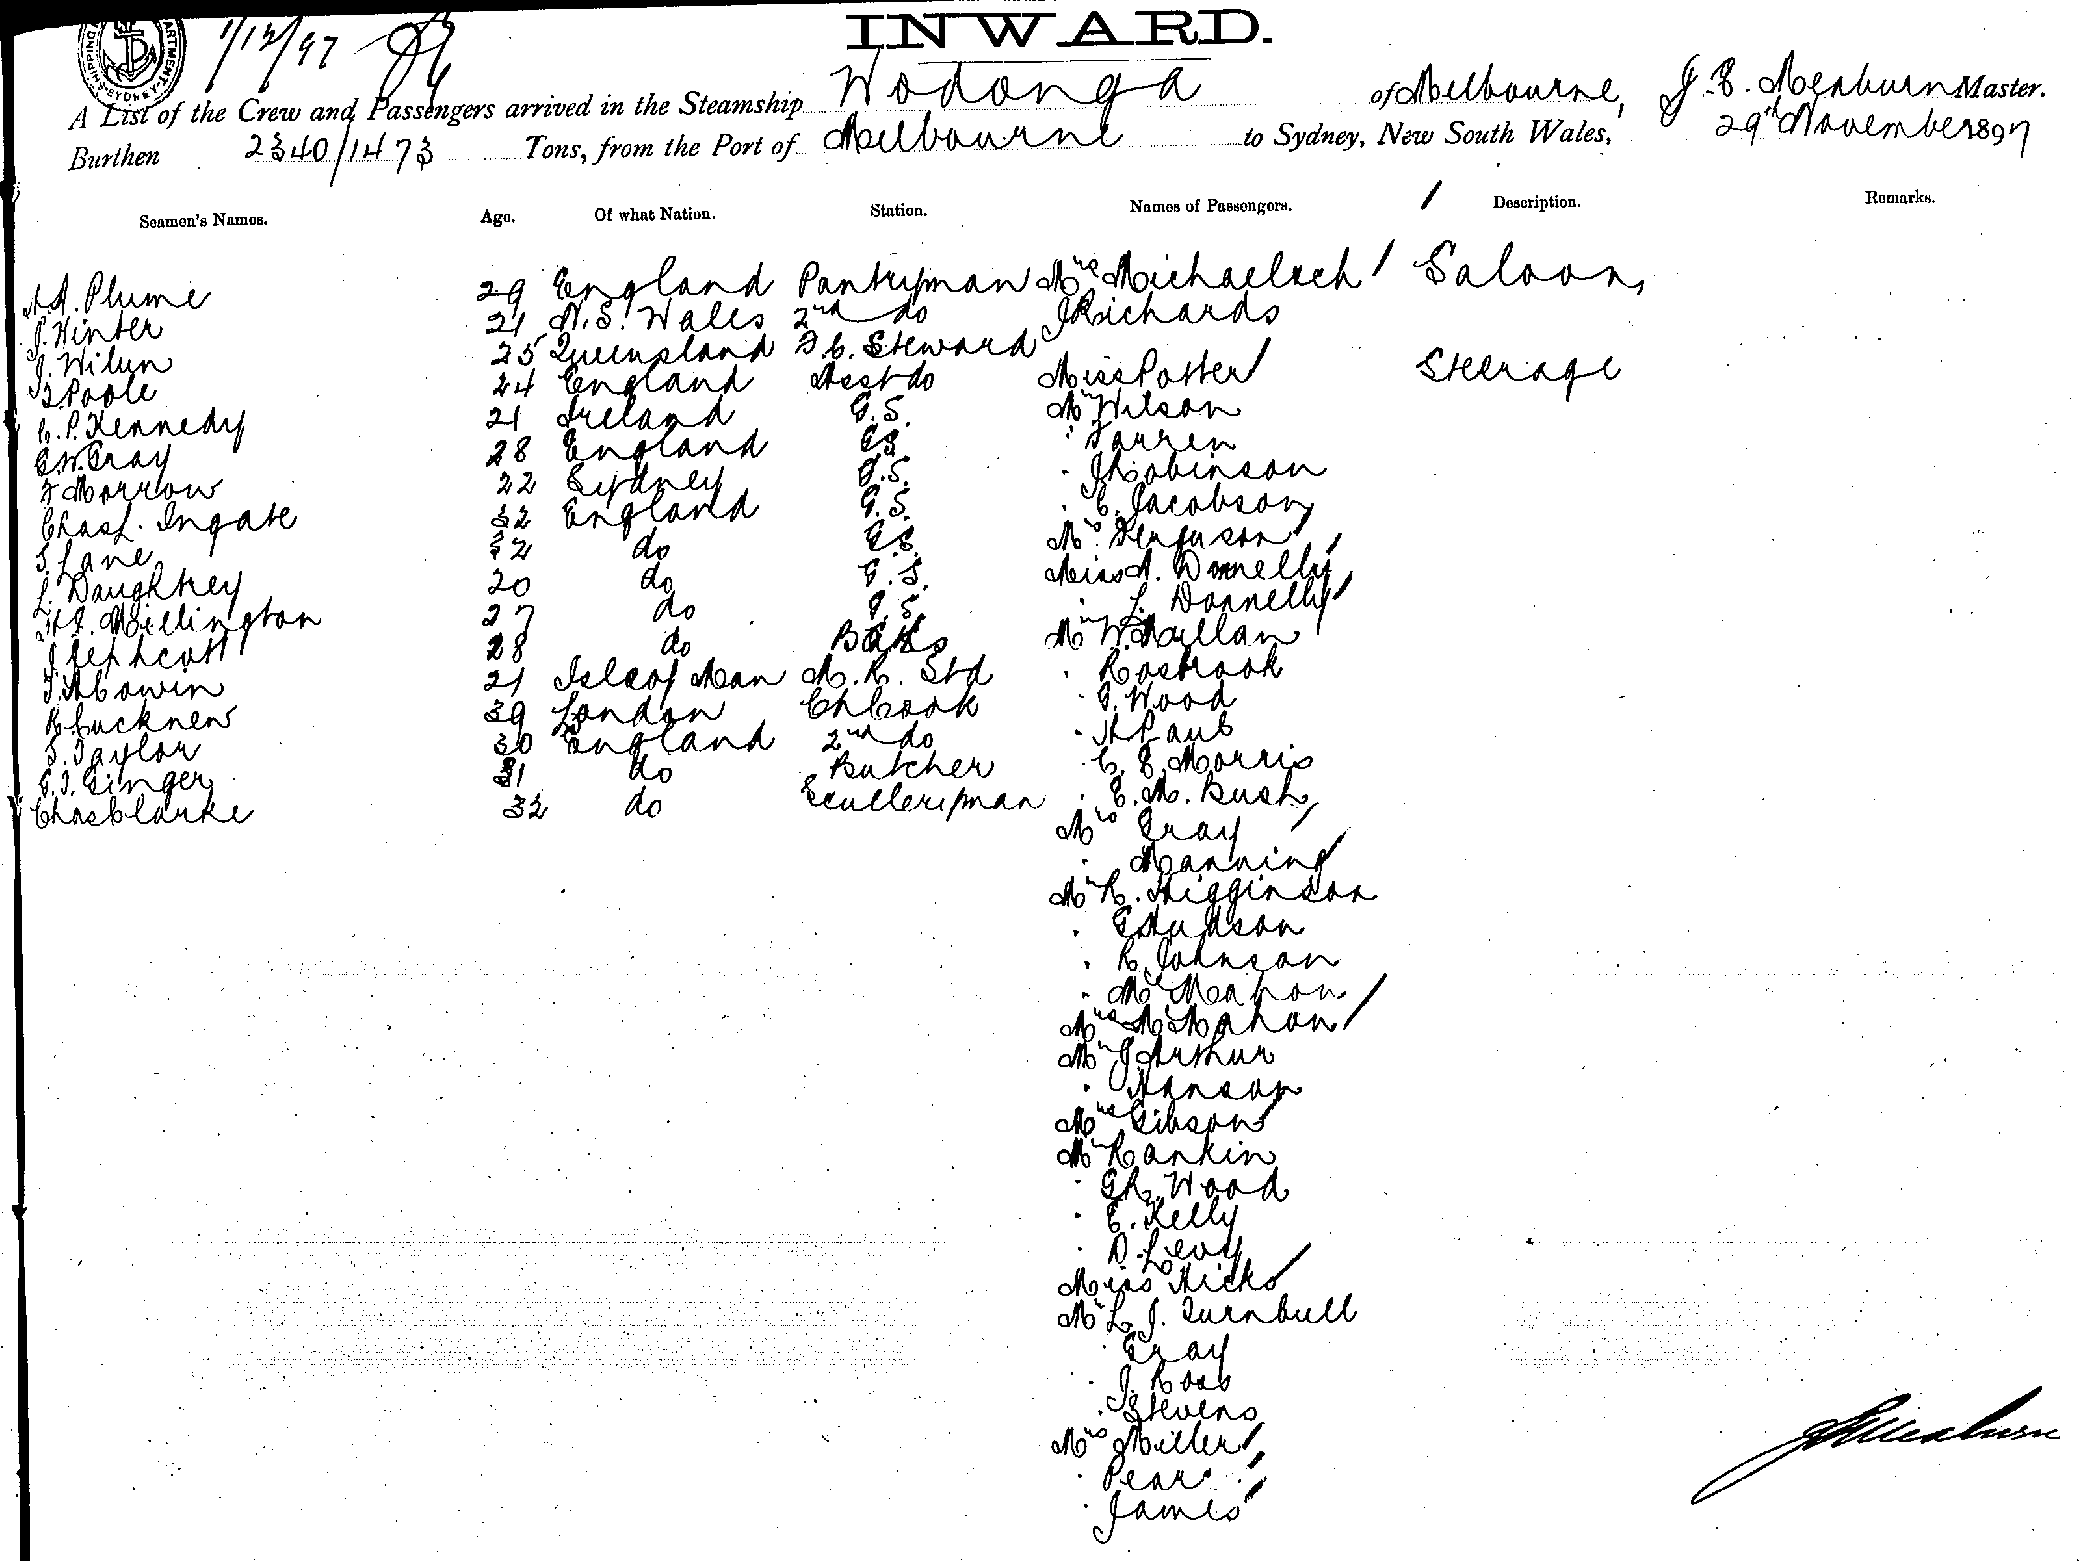 1/12/97
INWARD.
A List of the Crew and Passengers arrived in the Steamship Wodonga of Melbourne, J. E. Meaburn Master.
Burthen 2340/1473 Tons, from the Port of Melbourne to Sydney, New South Wales, 29th November 1897
Seamen's Names. Age. Of what Nation. Station. Names of Passengers. Description. Remarks.
A. Plume 29 England Pantryman Mrs Michaelsch Saloon,
J. Winter 21 N.S. Wales 2nd do J Richards
J. Wilun 25 Queensland F. C. Steward
B Poole 24 England Asst do Miss Potter Steerage
C. P. Kennedy 21 Ireland G.S. Mr Wilson
G.W. Gray 28 England G.S. " Farren
F Morrow 22 Sydney G.S. " J Robinson
Chas F. Ingate 32 England G.S. " C. Jacobson
S. Lane 32 do G.S. Mrs Ferguson
L. Daughtrey 20 do G.S. Miss A. Donnelly
H. J. Millington 27 do G.S. " L. Donnelly
J Jephcott 28 do Mr W. Mullan
T. A Cowin 21 Isle of Man M. R. Std " Rosbrook
R Cucknew 39 London Ch Cook " G. Wood
S. Taylor 30 England 2nd do " A Paul
G. J. Ginger 31 do Butcher " C. E. Morris
Chas Clarke 32 do Sculleryman " E. M. Bush
Mrs Gray
" Manning
Mr R. Higginson
" G Hudson
" R Johnson
" McMahon
Mrs McMahon
Mr J Arthur
" Hanson
Mrs Gibson
Mr Rankin
" G R. Wood
" C. Kelly
" D. Levy
Miss Hicks
Mr L. J. Turnbull
" Gray
" J. Ross
" Stevens
Mrs Miller
" Pearc
" James
J E Meaburn